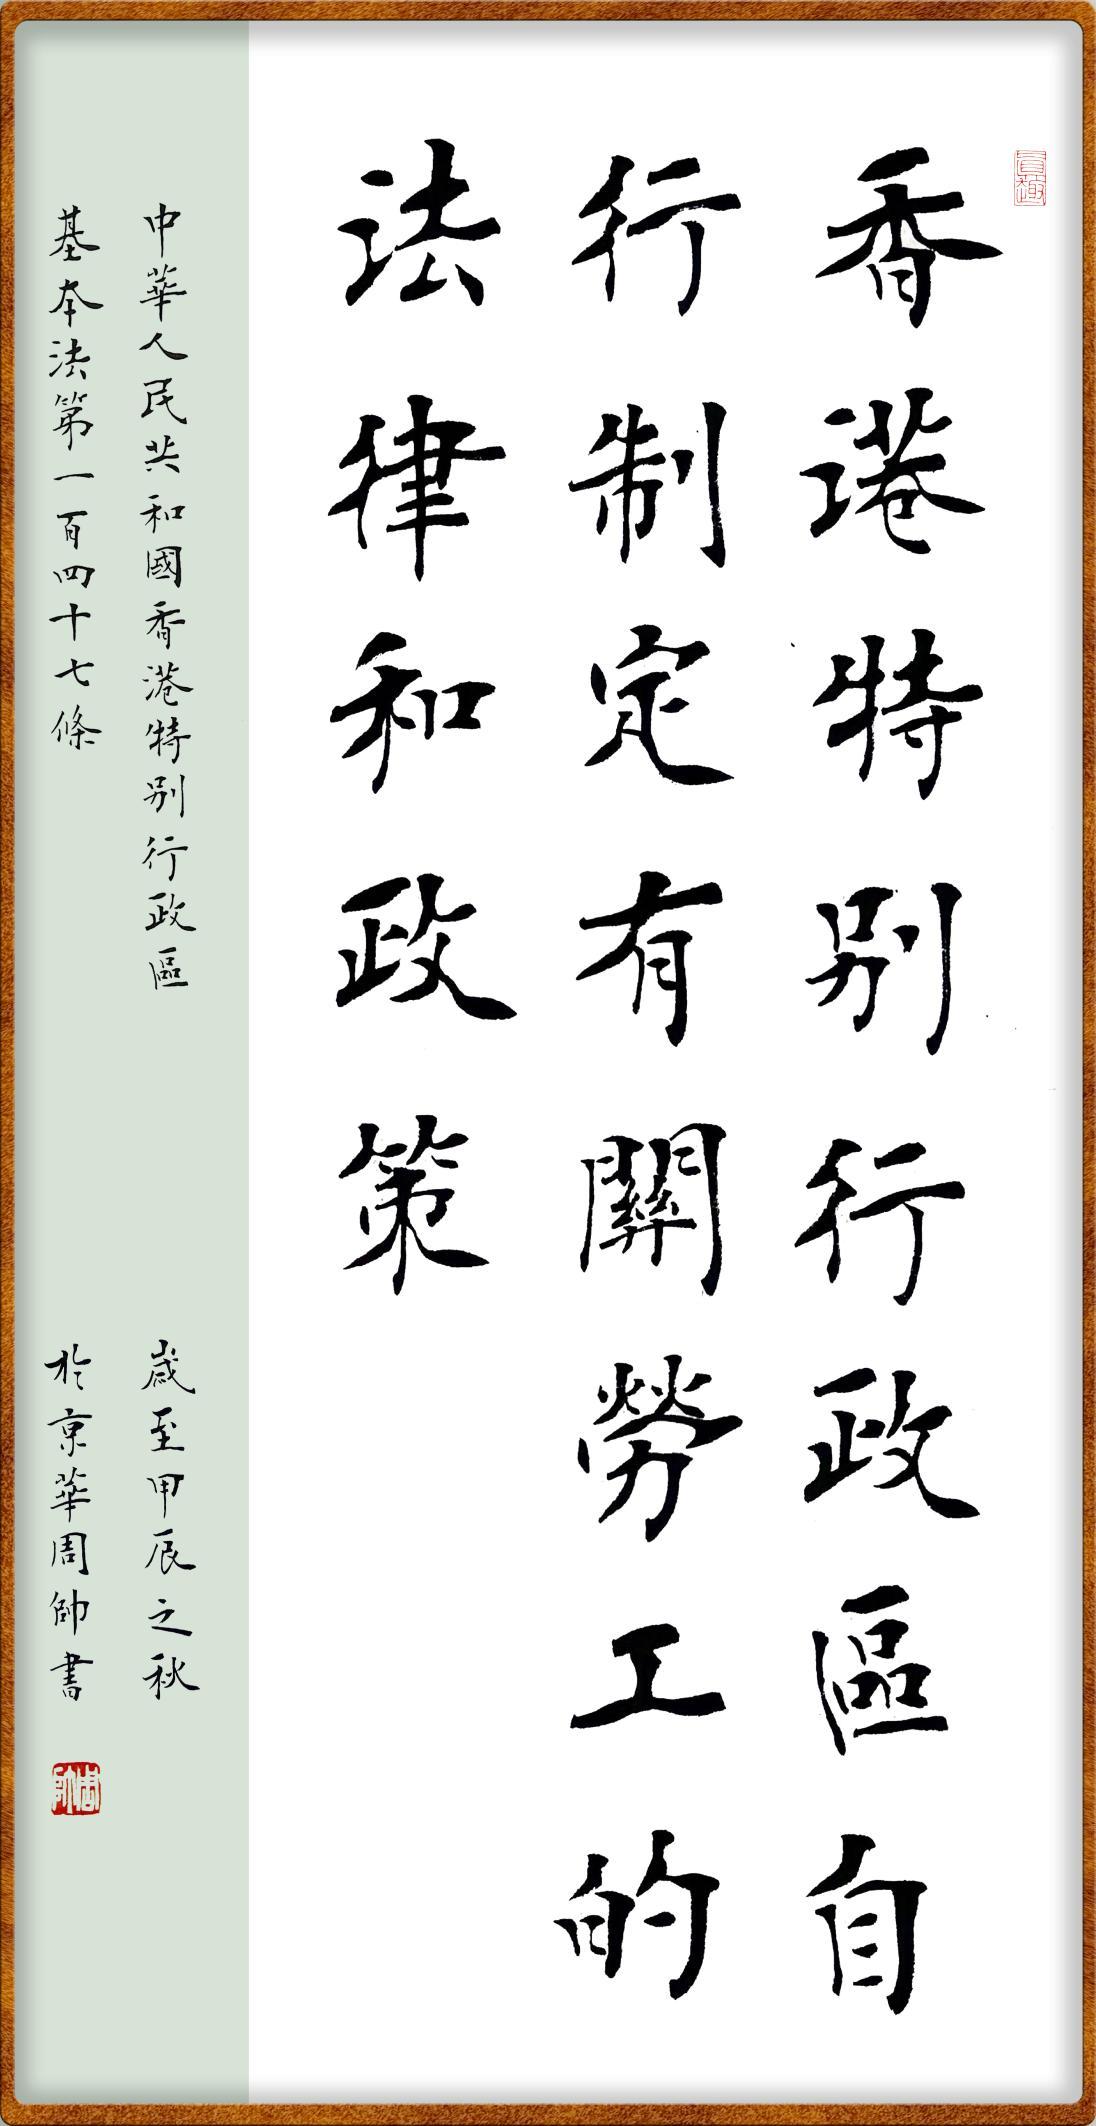 香港特別行政區自
行制定有關勞工的
法律和政策
中華人民共和國香港特別行政區
基本法第一百四十七條
歲至甲辰之秋
於京華周帥書
周帥